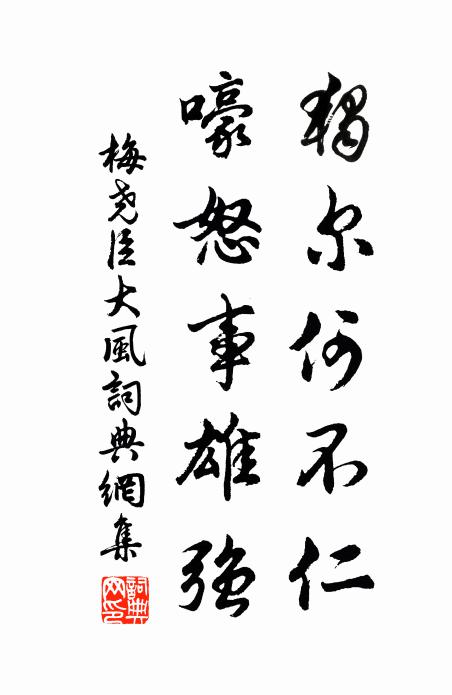 獨尔何不仁
嚎怒事雄强
梅尧臣大風詞典網集
詞典网印